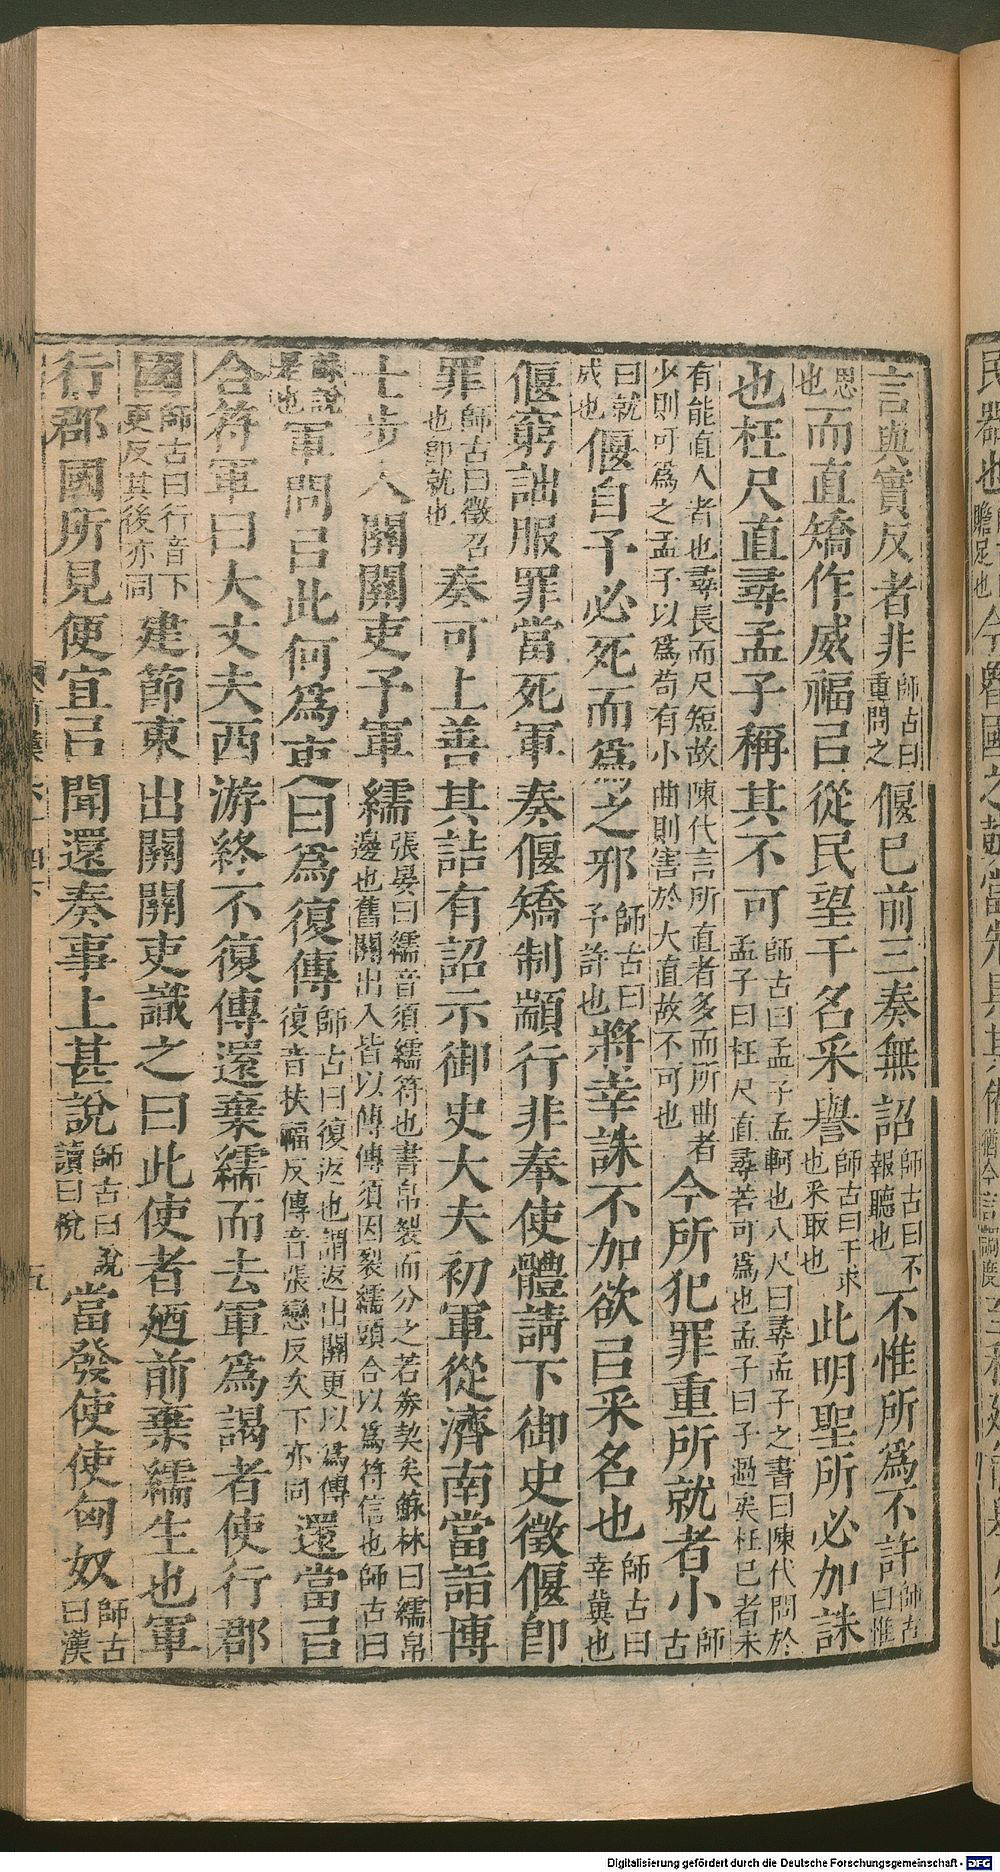 言與實反者非師古曰重問之偃巳前三奏無詔師古曰不報聽也不惟所爲不許師古曰惟
思也而直矯作威福㠯從民望干名采譽師古曰干求也采取也此明聖所必加誅
也枉尺直尋孟子稱其不可師古曰孟子孟軻也八尺曰尋孟子之書曰陳代問於孟子曰枉尺直尋若可爲也孟子曰子過矣枉已者未
有能直人者也尋長而尺短故陳代言所直者多而所曲者少則可爲之孟子以爲苟有小曲則害於大直故不可也今所犯罪重所就者小師古
曰就成也偃自予必死而爲之邪師古曰予許也將幸誅不加欲㠯采名也師古曰幸冀也
偃窮詘服罪當死軍奏偃矯制顓行非奉使體請下御史徵偃卽
罪師古曰徵召也卽就也奏可上善其詰有詔示御史大夫初軍從濟南當詣博
士步入關關吏予軍繻張晏曰繻音須繻符也書帛裂而分之若券契矣蘇林曰繻帛邊也舊關出入皆以傳傳須因裂繻頭合以爲符信也師古曰
蘇說是也軍問㠯此何爲吏曰爲復傳師古曰復返也謂返出關更以爲傳復音扶福反傳音張戀反次下亦同還當㠯
合符軍曰大丈夫西游終不復傳還棄繻而去軍爲謁者使行郡
國師古曰行音下更反其後亦同建節東出關關吏識之曰此使者廼前棄繻生也軍
行郡國所見便宜㠯聞還奏事上甚說師古曰說讀曰悅當發使使匈奴師古曰漢
五
Digitalisierung gefördert durch die Deutsche Forschungsgemeinschaft - DFG